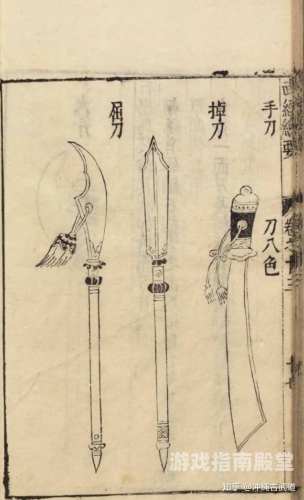 武經總要
卷之十三
刀八色
手刀
掉刀
屈刀
游戏指南殿堂
知乎 @冲绳古武道